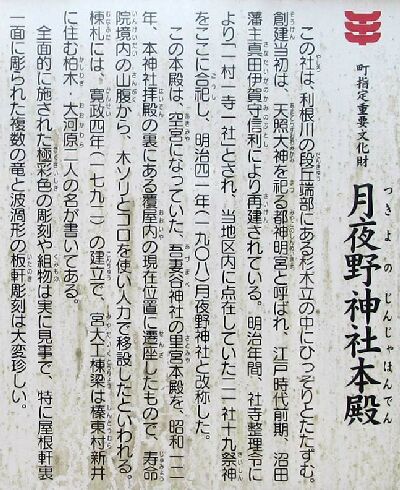 町指定重要文化財
つきよのじんじゃほんでん
月夜野神社本殿
この社は、利根川の段丘端部にある杉木立の中にひっそりとたたずむ。
創建当初は、天照大神を祀る都神明宮と呼ばれ、江戸時代前期、沼田
藩主真田伊賀守信利により再建されている。明治年間、社寺整理令に
より「一村一寺一社」とされ、当地区内に点在していた一一社十九祭神
をここに合祀し、明治四一年(一九〇八)月夜野神社と改称した。
この本殿は、空宮になっていた、吾妻谷神社の里宮本殿を、昭和一二
年、本神社拝殿の裏にある覆屋内の現在位置に遷座したもので、寿命
院境内の山腹から、木ソリとコロを使い人力で移設したといわれる。
棟札には、寛政四年(一七九二)の建立で、宮大工棟梁は榛東村新井
に住む柏木・大河原二人の名が書いてある。
全面的に施された極彩色の彫刻や組物は実に見事で、特に屋根軒裏
一面に彫られた複数の竜と波渦形の板軒彫刻は大変珍しい。